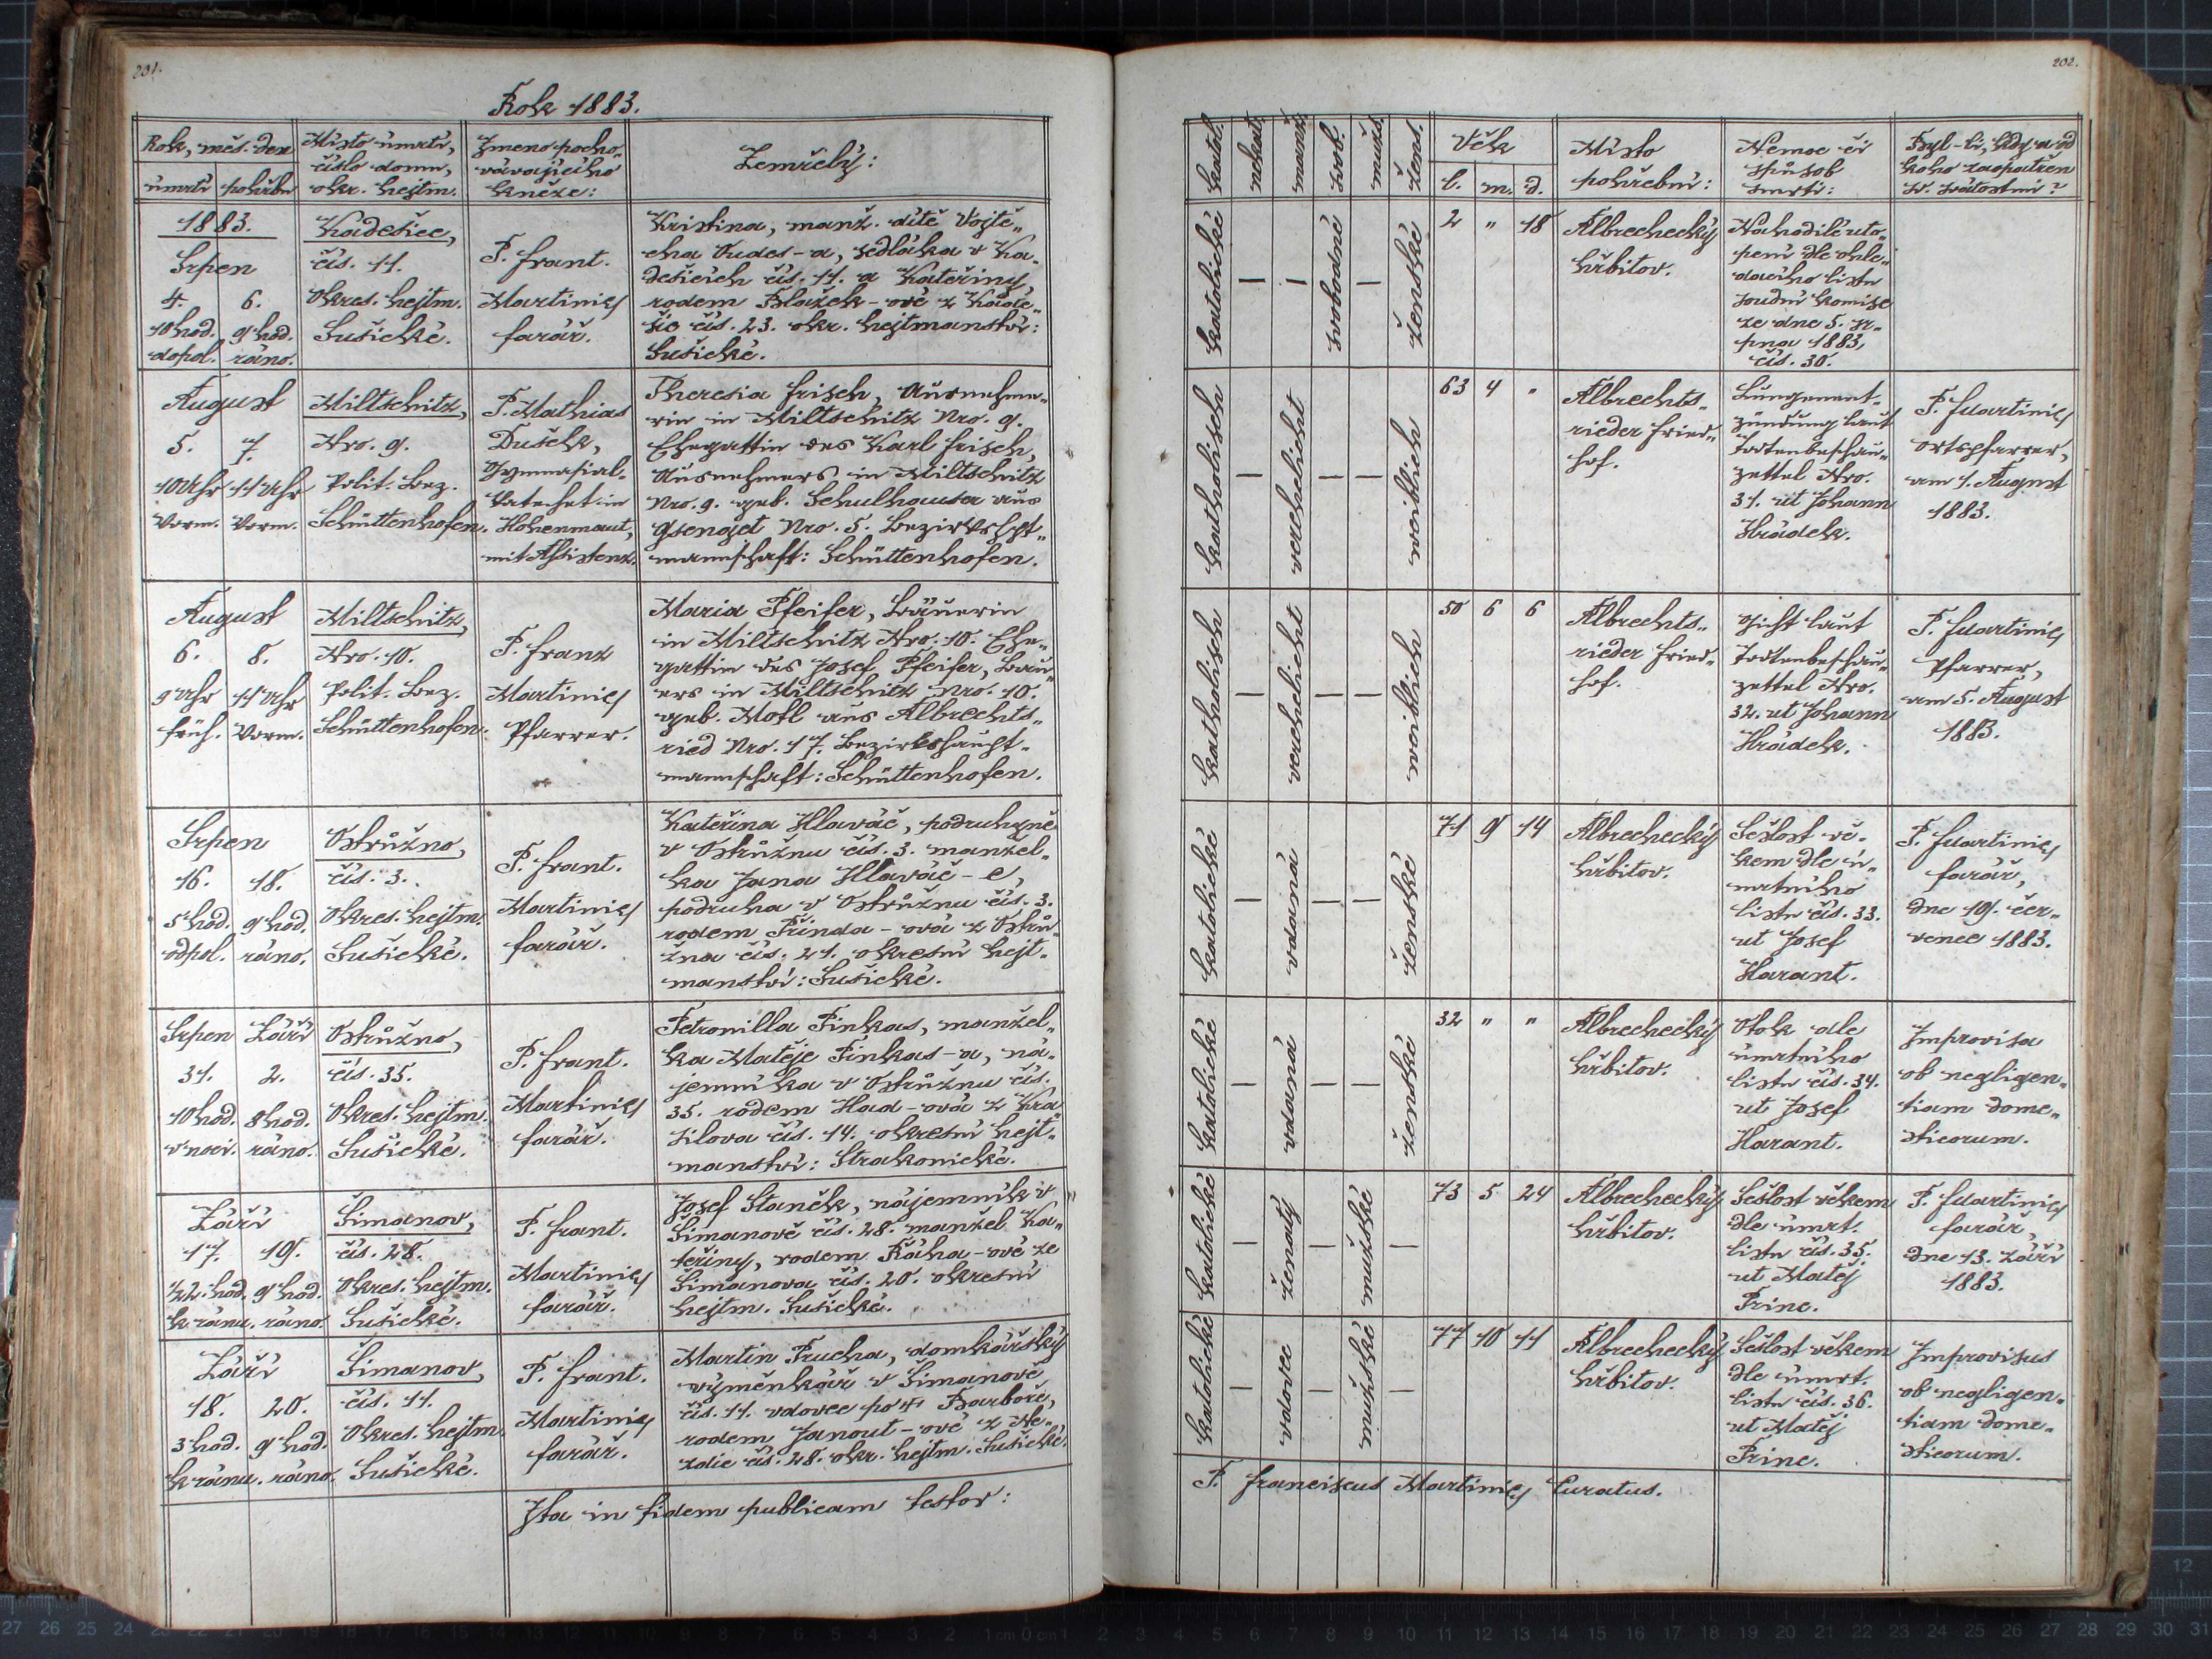 201.
Rok 1883.
Rok, měs. den
úmrtí pohřbu
Místo úmrtí,
číslo domu,
okr. hejtm.
Jmeno pocho„
vávajícího
kněze:
Zemřelý:
1883.
Srpen
4. 6.
10 hod. 9 hod.
dopol. ráno.
Kadešice,
čís. 11.
Okres. hejtm.
Sušické.
P. Frant.
Martinić
farář.
Kristina, manž. dítě Vojtě„
cha Oudes-a, sedláka v Ka„
dešicích čís. 11. a Kateřiny,
rodem Blažek-ové z Kade„
šic čís. 23. okr. hejtmanství:
Sušické.
August
5. 7.
10 Uhr 11 Uhr
Vorm. Vorm.
Miltschitz,
Nro. 9.
Polit. Bez.
Schüttenhofen.
P. Mathias
Dušek,
Gymnasial-
Katechet in
Hohenmaut,
mit Assistenz.
Theresia Frisch, Ausnehme„
rin in Miltschitz Nro. 9.
Ehegattin des Karl Frisch,
Ausnehmers in Miltschitz
Nro. 9. geb. Schulhauser aus
Gsenget Nro. 5. Bezirkshpt„
mannschaft: Schüttenhofen.
August
6. 8.
9 Uhr 11 Uhr
früh. Vorm.
Miltschitz,
Nro. 10.
Polit. Bez.
Schüttenhofen.
P. Franz
Martinić
Pfarrer.
Maria Pfeifer, Bäuerin
in Miltschitz Nro. 10. Ehe„
gattin des Josef Pfeifer, Bau„
ers in Miltschitz Nro. 10.
geb. Motl aus Albrechts„
ried Nro. 17. Bezirkshaupt„
mannschaft: Schüttenhofen.
Srpen
16. 18.
5 hod. 9 hod.
odpol. ráno.
Ostružno,
čís. 3.
Okres. hejtm.
Sušické.
P. Frant.
Martinić
farář.
Kateřina Hlaváč, podruhyně
v Ostružnu čís. 3. manžel„
ka Jana Hlaváč-e,
podruha v Ostružnu čís. 3.
rodem Řinda-ová z Ostru„
žna čís. 21. okresní hejt„
manství: Sušické.
Srpen Září
31. 2.
10 hod. 8 hod.
v noci. ráno.
Ostružno,
čís. 35.
Okres. hejtm.
Sušické.
P. Frant.
Martinić
farář.
Petronilla Pinkas, manžel„
ka Matěje Pinkas-a, ná„
jemníka v Ostružnu čís.
35. rodem Had-ová z Kra„
silova čís. 14. okresní hejt„
manství: Strakonické.
Září
17. 19.
1/22. hod. 9 hod.
k ránu. ráno.
Šimanov,
čís. 28.
Okres. hejtm.
Sušické.
P. Frant.
Martinić
farář.
Josef Staněk, nájemník v
Šimanově čís. 28. manžel Ka„
teřiny, rodem Bláha-ové ze
Šimanova čís. 20. okresní
hejtm. Sušické.
Září
18. 20.
3 hod. 9 hod.
k ránu. ráno.
Šimanov,
čís. 11.
Okres. hejtm.
Sušické.
P. Frant.
Martinić
farář.
Martin Prucha, domkářský
výměnkář v Šimanově,
čís. 11. vdovec po + Barboře,
rodem Janout-ové z Ne„
zdic čís. 28. okr. hejtm. Sušické.
Ita in fidem publicam testor:
202.
katol.
nekat.
manž.
svob.
mužs.
žens.
Věk
l. m. d.
Místo
pohřební:
Nemoc či
způsob
smrti:
Byl-li, kdy a od
koho zaopatřen
sv. svátostmi?
katolické
— —
svobodné
—
ženské
2 „ 18
Albrechecký
hřbitov.
Náhodilé uto„
pení dle ohle„
dacího listu
soudní komise
ze dne 5. sr„
pna 1883,
čís. 30.
katholisch
—
verehelicht
— —
weiblich
63 4 „
Albrechts„
rieder Fried„
hof.
Lungenent„
zündung laut
Todtenbeschau„
zettel Nro.
31. ut Johann
Hrádek.
P. Martinić
Ortspfarrer,
am 1. August
1883.
katholisch
—
verehelicht
— —
weiblich
50 6 6
Albrechts„
rieder Fried„
hof.
Gicht laut
Todtenbeschau„
zettel Nro.
32. ut Johann
Hrádek.
P. Martinić
Pfarrer,
am 5. August
1883.
katolické
—
vdaná
— —
ženské
71 9 14
Albrechecký
hřbitov.
Sešlost vě„
kem dle ú„
mrtního
listu čís. 33.
ut Josef
Harant.
P. Martinić
farář,
dne 19. čer„
vence 1883.
katolické
—
vdaná
— —
ženské
32 „ „
Albrechecký
hřbitov.
Otok dle
úmrtního
listu čís. 34.
ut Josef
Harant.
Improvisa
ob negligen„
tiam dome„
sticorum.
katolické
—
ženatý
—
mužské
—
73 5 24
Albrechecký
hřbitov.
Sešlost věkem
dle úmrt.
listu čís. 35.
ut Matěj
Princ.
P. Martinić
farář,
dne 13. září
1883.
katolické
—
vdovec
—
mužské
—
77 10 11
Albrechecký
hřbitov.
Sešlost věkem
dle úmrt.
listu čís. 36.
ut Matěj
Princ.
Improvisus
ob negligen„
tiam dome„
sticorum.
P. Franciscus Martinić Curatus.